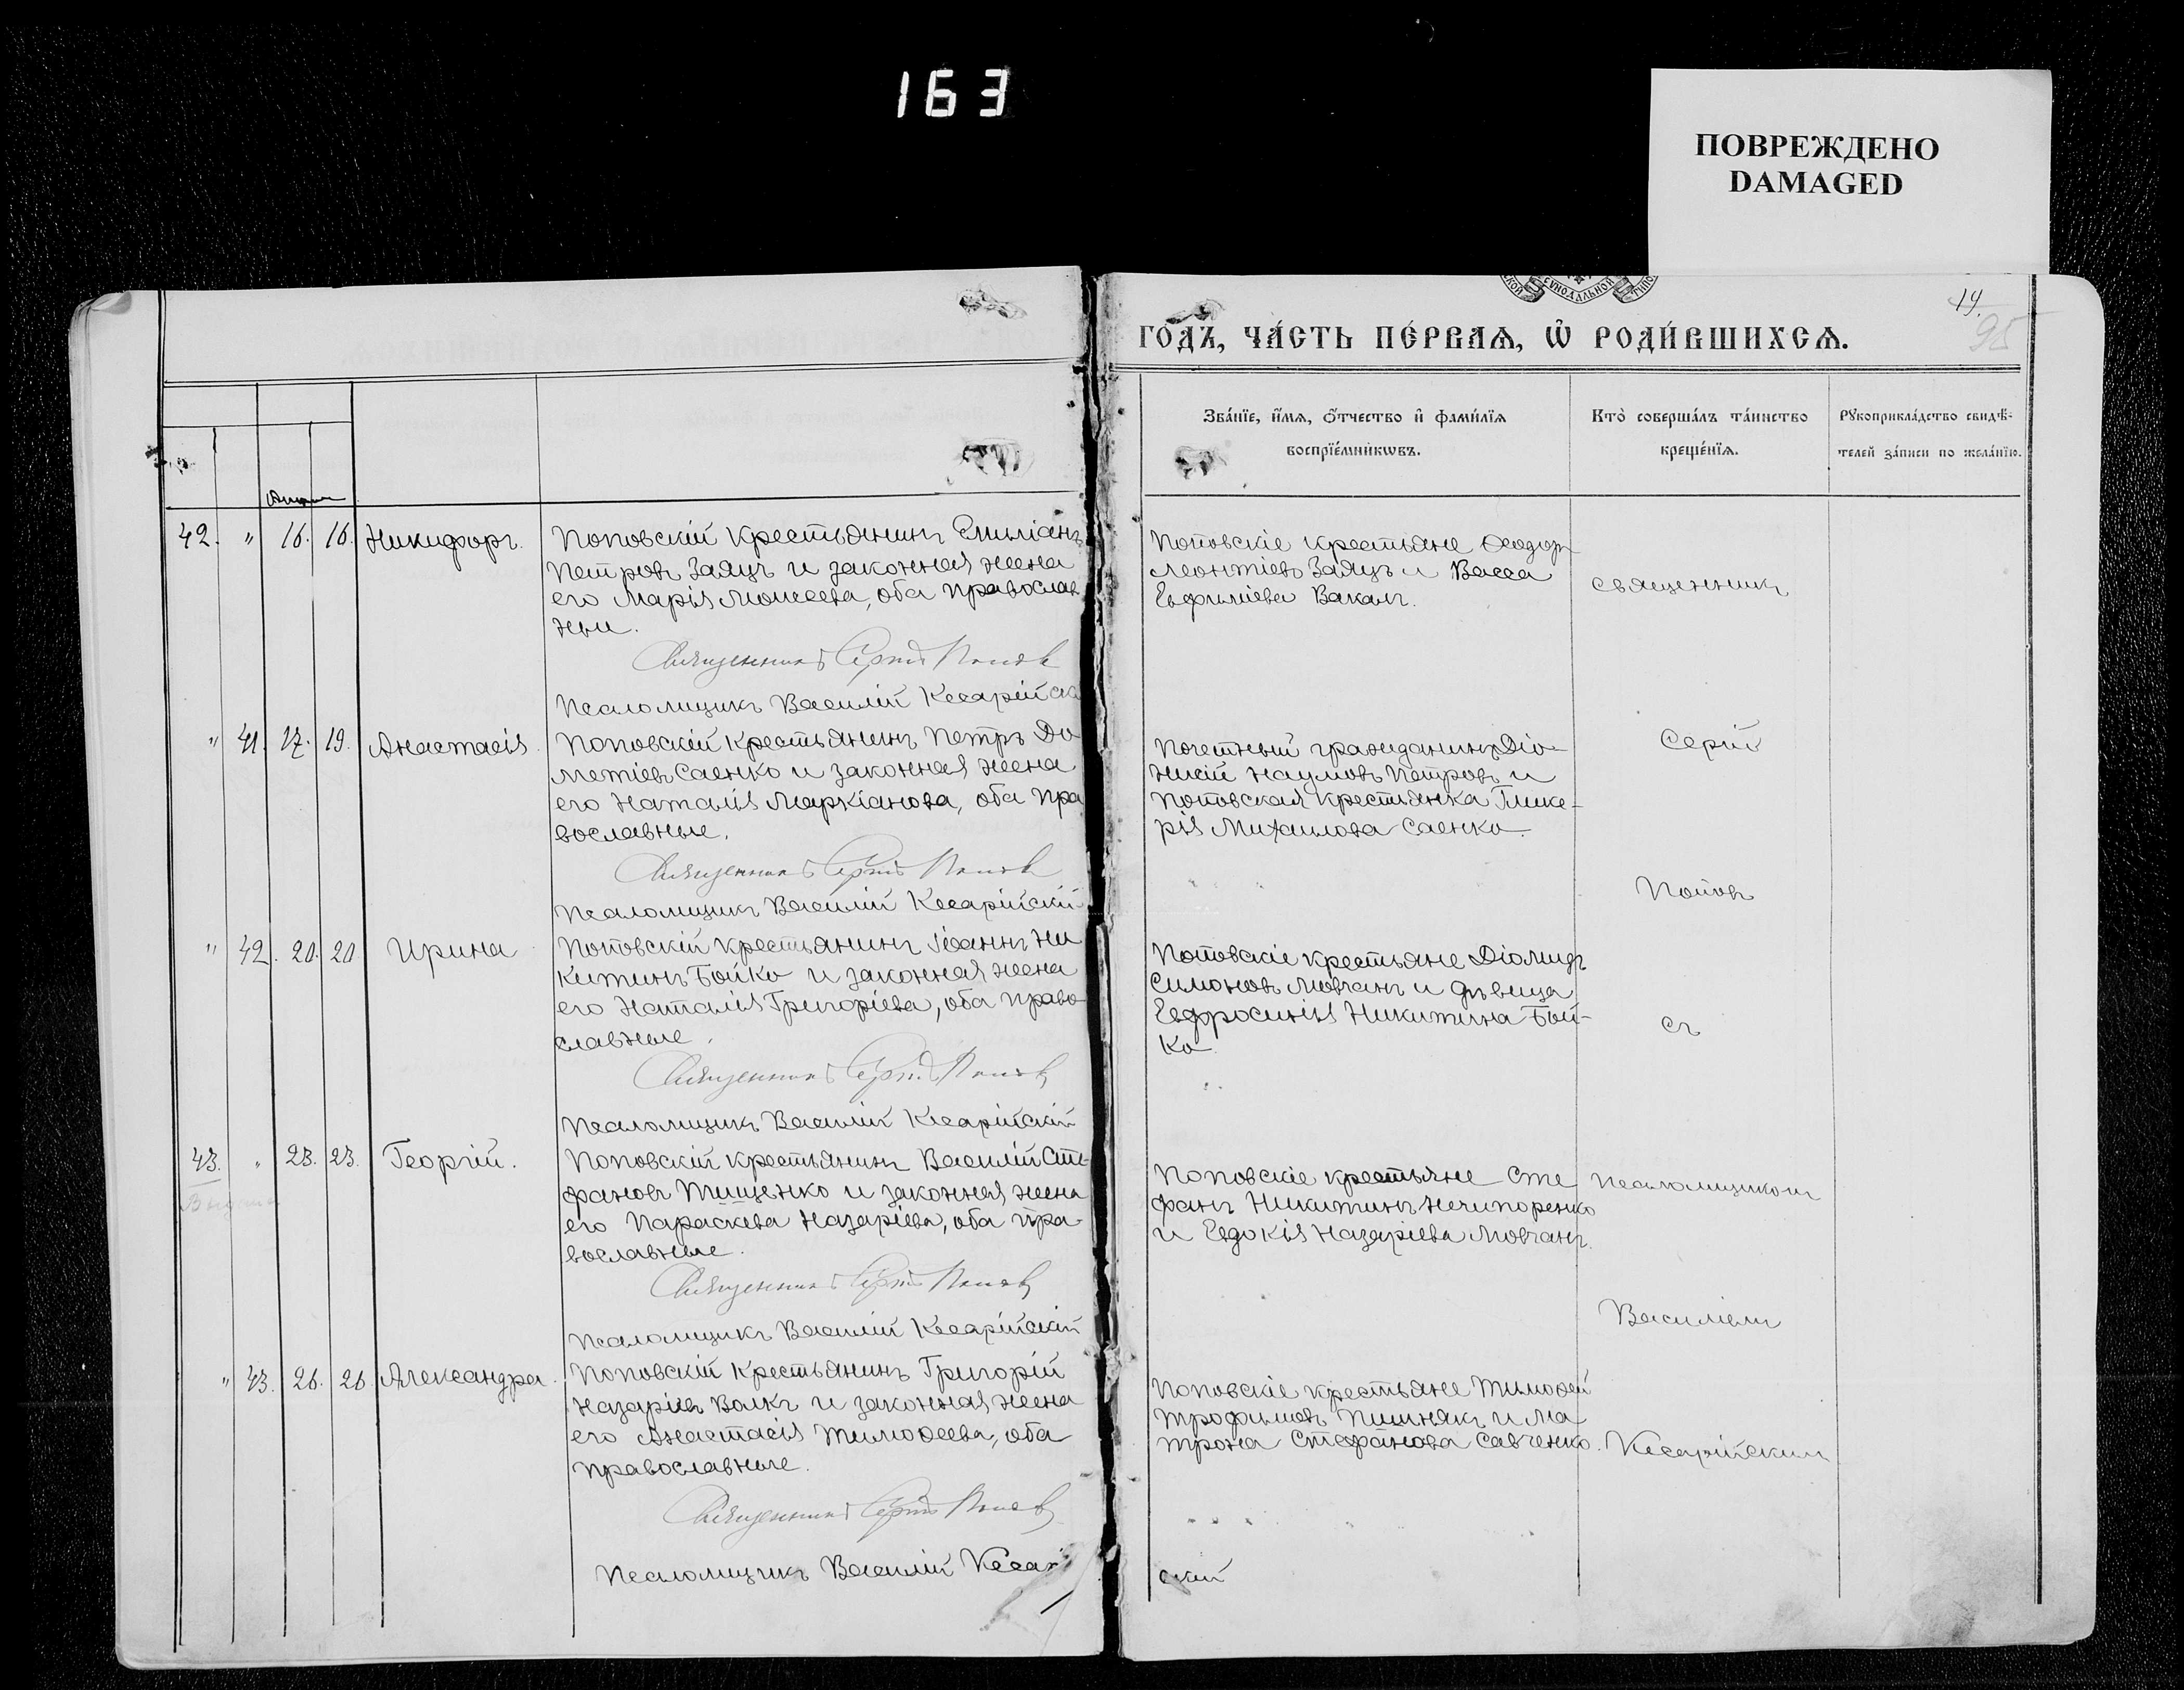 163
ПОВРЕЖДЕНО
DAMAGED
14.
95
ГОДЪ, ЧАСТЬ ПЕРВАЯ, Ѡ РОДИВШИХСЯ.
Званїе, имя, отчество и фамилїя
воспрїемникωвъ.
Кто совершалъ таинство
крещенїя.
Рꙋкоприкладство свидѣ-
телей записи по желанїю.
42. " 16. 16. Никифоръ.
Поповскій крестьянинъ Емиліанъ
Петровъ Заяцъ и законная жена
его Марія Моисеева, оба православ
ные.
Священникъ Сергій Поповъ
Псаломщикъ Василій Кесарійск
Поповскіе крестьяне Ѳеодоръ
Леонтіевъ Заяцъ и Васса
Евфиміева Ваканъ.
Священникъ
" 41. 17. 19. Анастасія.
Поповскій крестьянинъ Петръ До
метіевъ Саенко и законная жена
его Наталія Маркіанова, оба пра
вославные.
Священникъ Сергій Поповъ
Псаломщикъ Василій Кесарійскій
Почетный гражданинъ Діо-
нисій Наумовъ Петровъ и
Поповская крестьянка Глике-
рія Михаилова Саенко.
Сергій
Поповъ
" 42. 20. 20 Ирина
Поповскій крестьянинъ Іоаннъ Ни
китинъ Бойко и законная жена
его Наталія Григоріева, оба право
славные.
Священникъ Сергій Поповъ
Псаломщикъ Василій Кесарійскій
Поповскіе крестьяне Діомидъ
Симоновъ Мовчанъ и дѣвица
Евфросинія Никитина Бой-
ко
съ
43. " 23. 23. Георгій.
Поповскій крестьянинъ Василій Сте
фановъ Тищенко и законная жена
его Параскева Назаріева, оба пра-
вославные.
Священникъ Сергій Поповъ
Псаломщикъ Василій Кесарійскій
Поповскіе крестьяне Сте
фанъ Никитинъ Нечипоренко
и Евдокія Назаріева Мовчанъ.
псаломщикомъ
Василіемъ
" 43. 26. 26 Александра.
Поповскій крестьянинъ Григорій
Назаріевъ Волкъ и законная жена
его Анастасія Тимоѳеева, оба
православные.
Священникъ Сергій Поповъ
Псаломщикъ Василій Кесарій
скій
Поповскіе крестьяне Тимоѳей
Трофимовъ Пишнякъ и Ма
трона Стефанова Савченко.
Кесарійскимъ